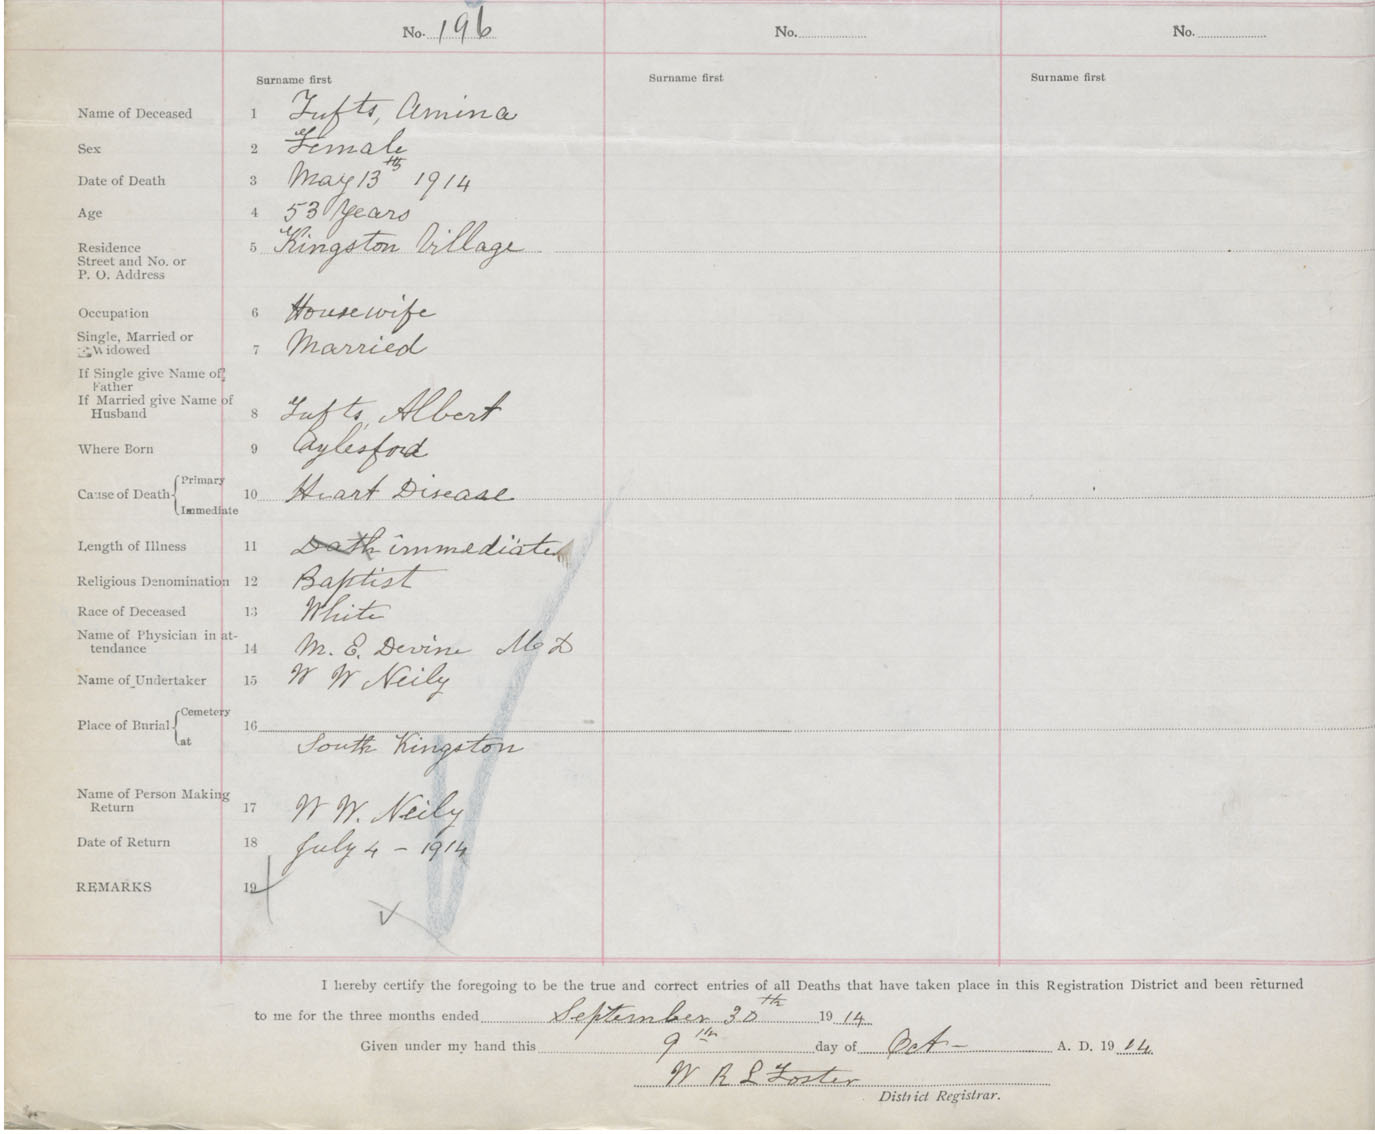 No. 196 No. No.
Surname first Surname first Surname first
Name of Deceased 1 Tufts, Amina
Sex 2 Female
Date of Death 3 May 13th 1914
Age 4 53 Years
Residence 5 Kingston Village
Street and No. or
P. O. Address
Occupation 6 Housewife
Single, Married or
Widowed 7 Married
If Single give Name of
Father
If Married give Name of
Husband 8 Tufts, Albert
Where Born 9 Aylesford
Primary
Cause of Death 10 Heart Disease
Immediate
Length of Illness 11 Death immediate
Religious Denomination 12 Baptist
Race of Deceased 13 White
Name of Physician in at-
tendance 14 M. E. Devine M D
Name of Undertaker 15 W W Neily
Cemetery
Place of Burial 16
at South Kingston
Name of Person Making
Return 17 W W. Neily
Date of Return 18 July 4 - 1914
REMARKS 19
I hereby certify the foregoing to be the true and correct entries of all Deaths that have taken place in this Registration District and been returned
to me for the three months ended September 30th 1914
Given under my hand this 9th day of Oct - A. D. 1914
W R L Foster
District Registrar.